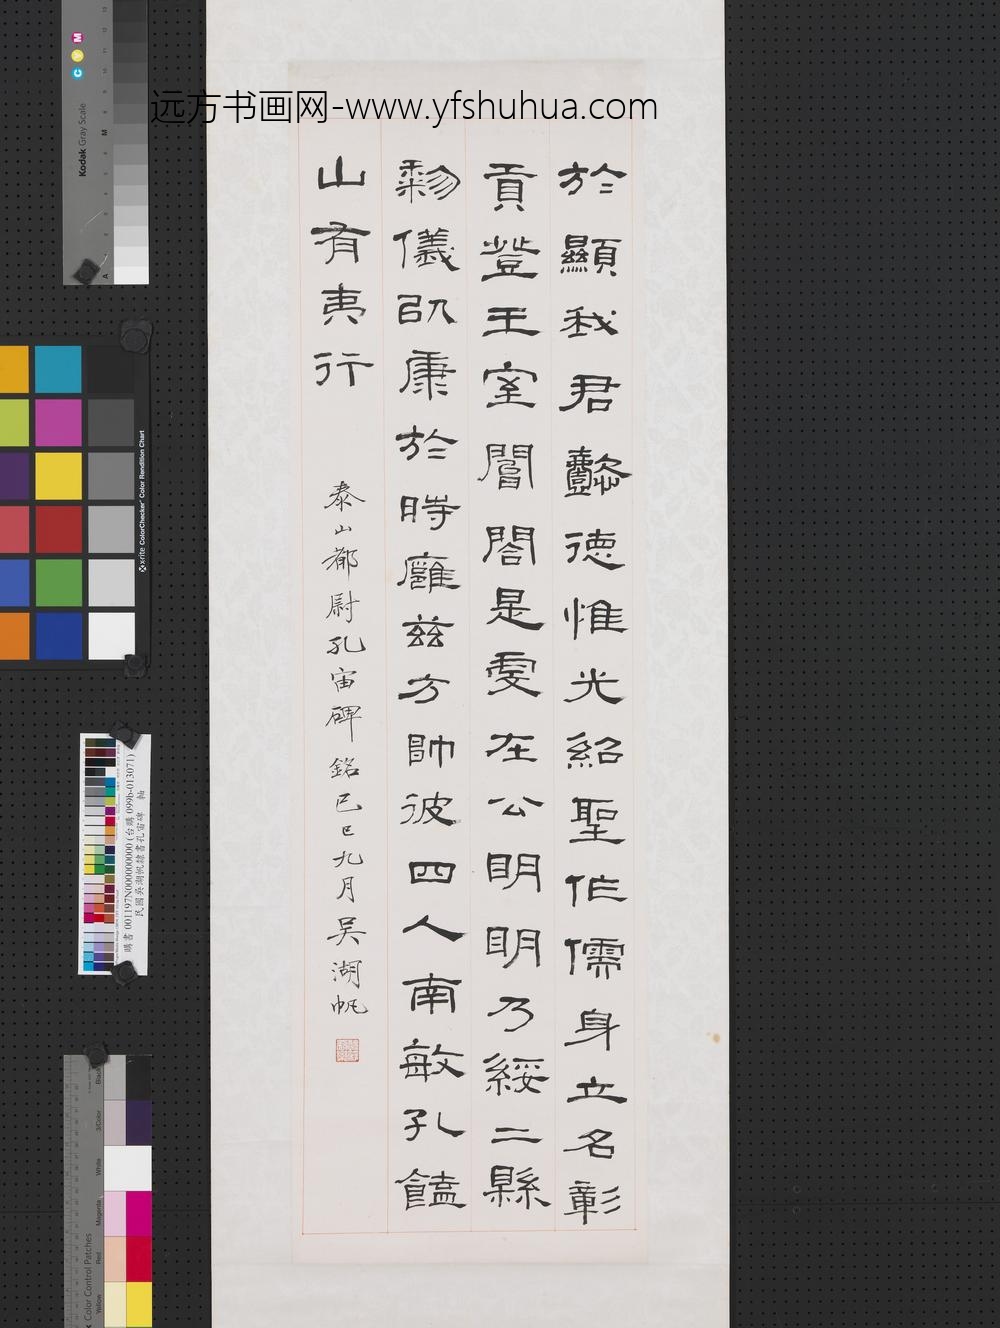 远方书画网-www.yfshuhua.com
於顯我君懿德惟光紹聖作儒身立名彰
貢登王室閽閤是虔在公明明乃綏二縣
黎儀以康於時廱茲方帥彼四人南畝孔饁
山有夷行
泰山都尉孔宙碑銘己巳九月吳湖帆
Kodak Gray Scale
C Y M
A
M
x-rite ColorChecker Color Rendition Chart
購書 001197N000000000 (台購 099b-013071)
民國吳湖帆隸書孔宙碑 軸
Color Control Patches
Black
3/Color
White
Magenta
Red
Yellow